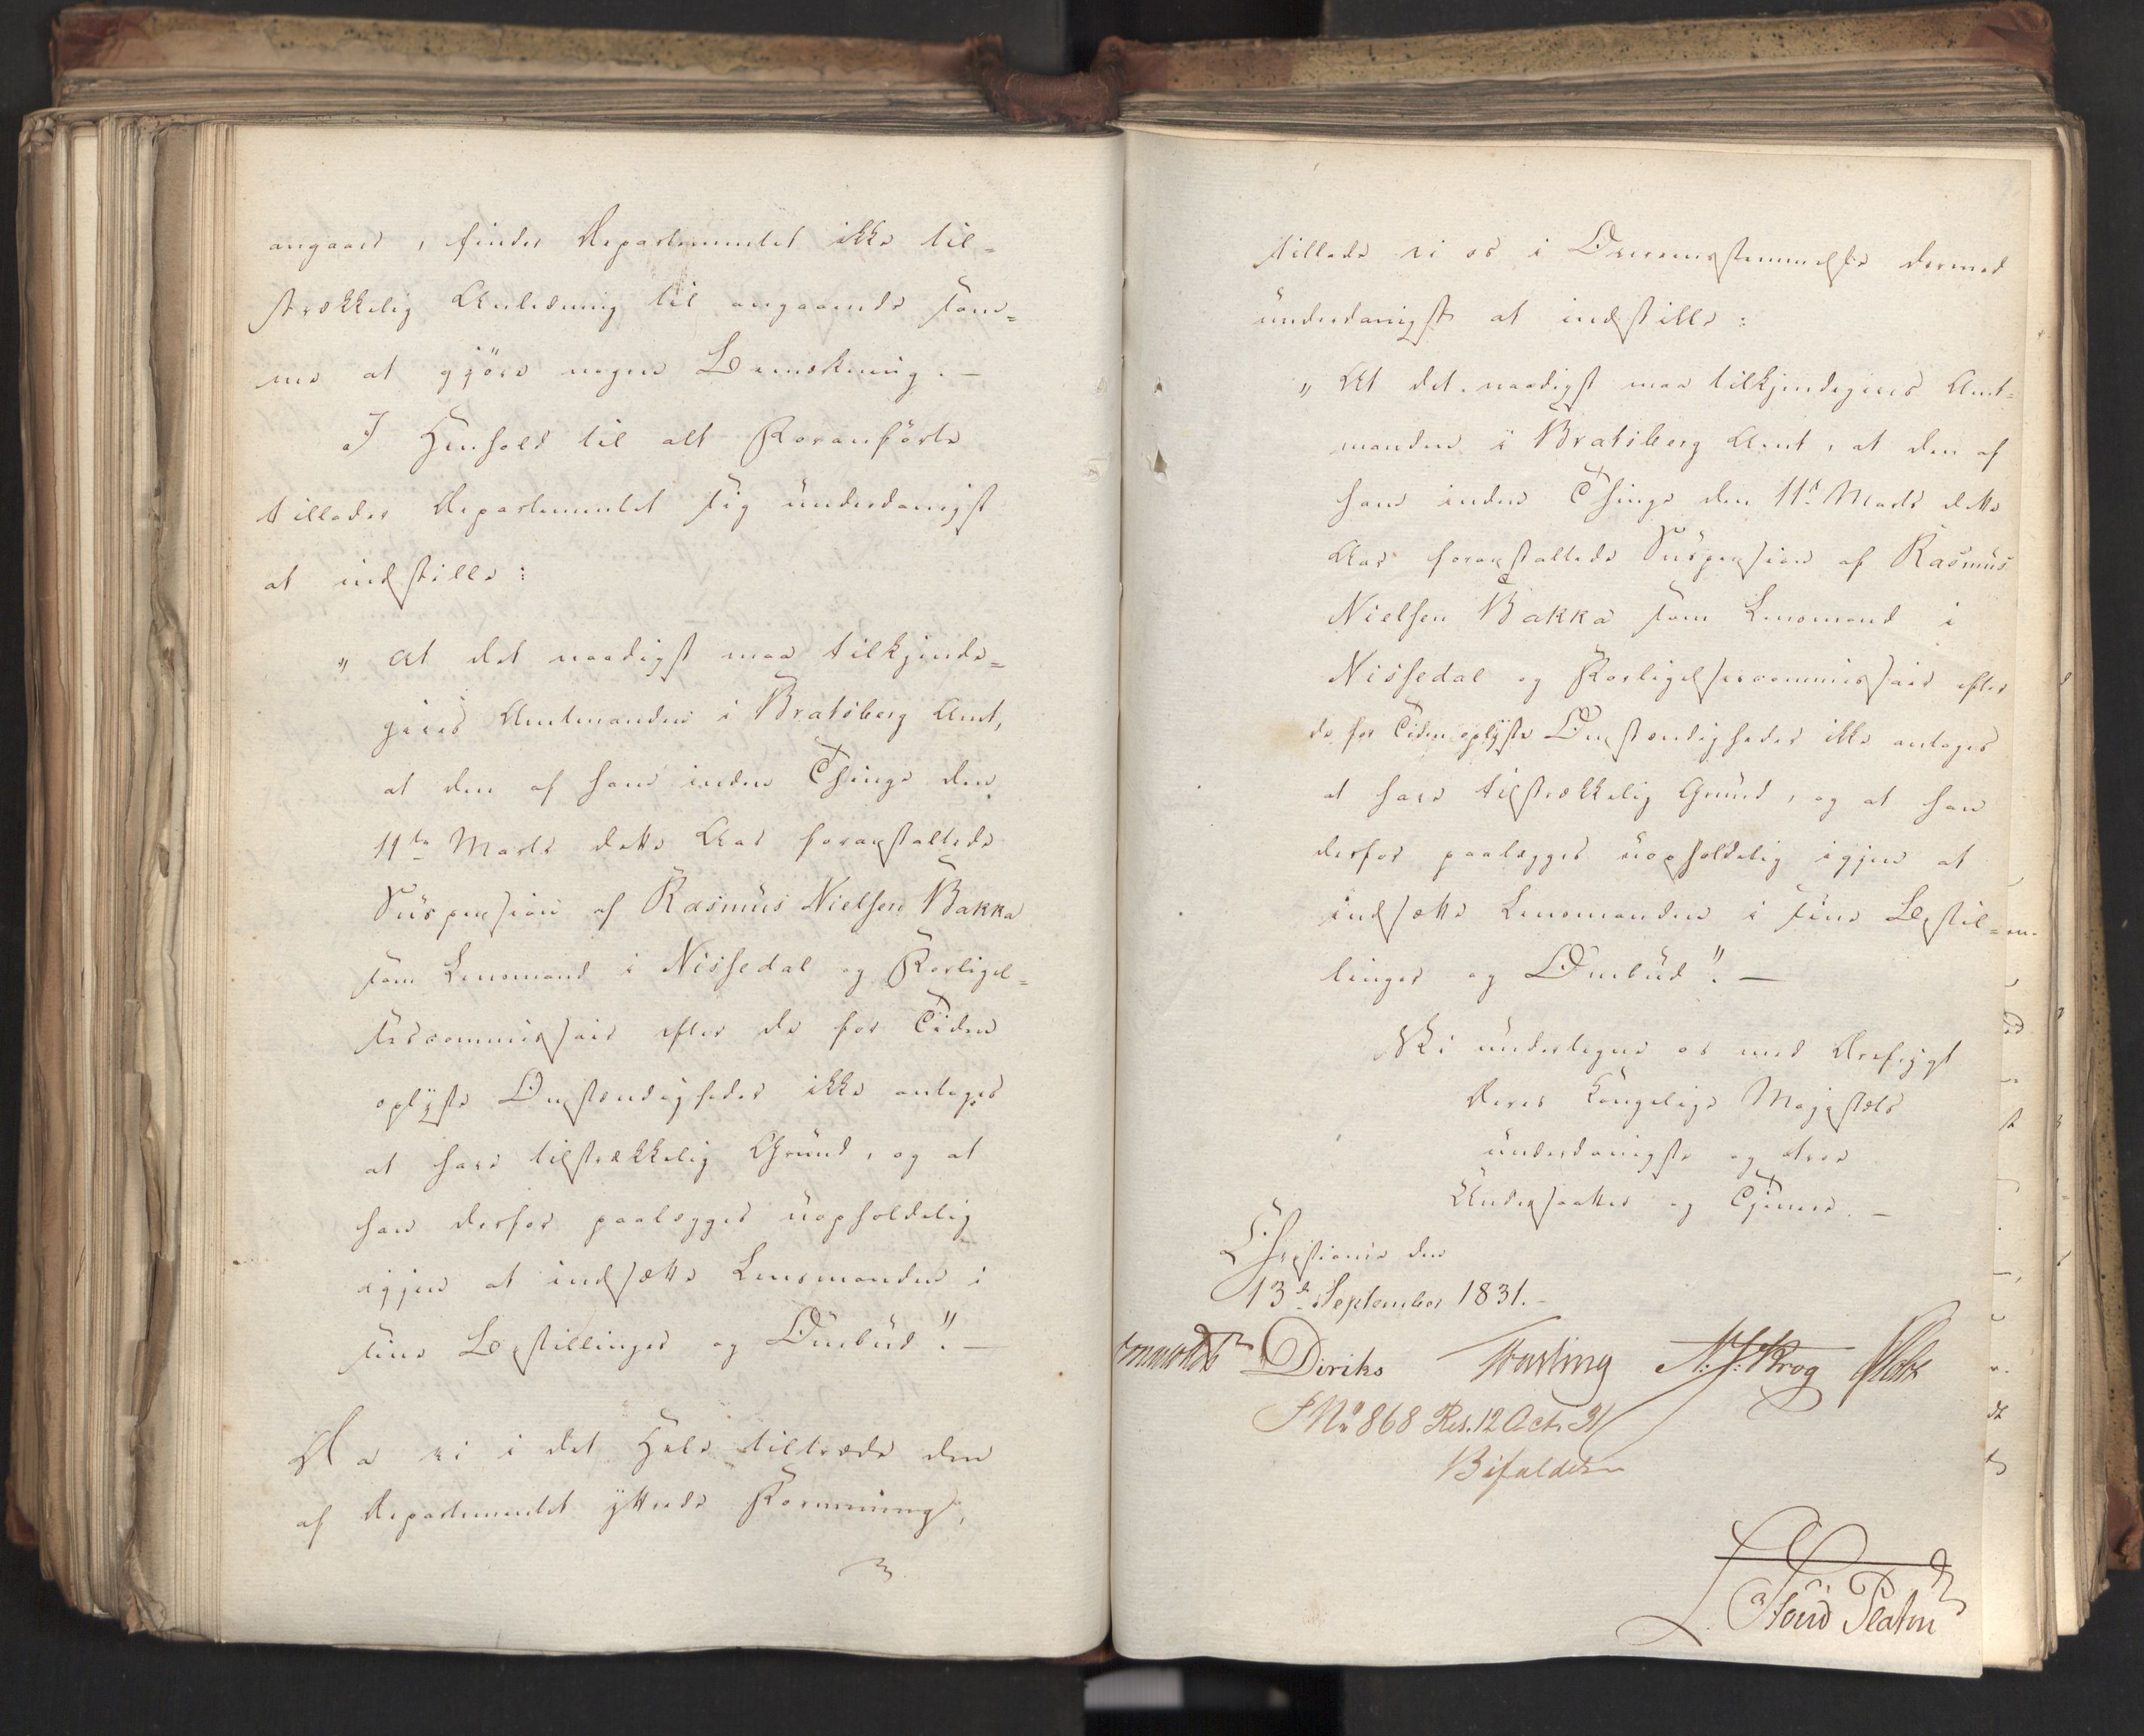 angaaer, finder Departementet ikke til-
strækkelig Anledning til angaaende sam-
me at gjöre nogen Bemærkning. —
I Henhold til alt Foranförte
tillader Departementet sig underdanigst
at indstille:
„At det naadigst maa tilkjende-
gives Amtmanden i Bratsberg Amt,
at den af ham inden Thinge den
11te Marts dette Aar foranstaltede
Suspension af Rasmus Nielsen Bakka
som Lensmand i Nissedal og Forligel-
sescommissair efter de for Tiden
oplyste Omstændigheder ikke antages
at have tilstrækkelig Grund, og at
han derfor paalægges uopholdelig
igjen at indsætte Lensmanden i
sine Bestillinger og Ombud". —
Da vi i det Hele tiltræde den
af Departementet yttrede Formening,
tillade vi os i Overeensstemmelse dermed
underdanigst at indstille:
„At det naadigst maa tilkjendegives Amt-
manden i Bratsberg Amt, at den af
ham inden Thinge den 11te Marts dette
Aar foranstaltede Suspension af Rasmus
Nielsen Bakka som Lensmand i
Nissedal og Forligelsescommissair efter
de for Tiden oplyste Omstændigheder ikke antages
at have tilstrækkelig Grund, og at han
derfor paalægges uopholdelig igjen at
indsætte Lensmanden i sine Bestil-
linger og Ombud". —
Vi undertegne os med Ærefrygt
Deres Kongelige Majestæts
underdanigste og troe
Undersaatter og Tjenere. —
Christiania den
13de September 1831. —
Diriks N: J: Krog
J No 868 Res. 12 Oct. 31
Bifaldes
Due Platou